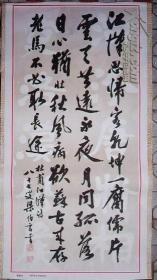 江漢思歸客乾坤一腐儒片
雲天共遠永夜月同孤落
日心猶壯秋風病欲蘇古来存
老馬不必取長途
杜甫江漢詩
八十七叟梁伯言書